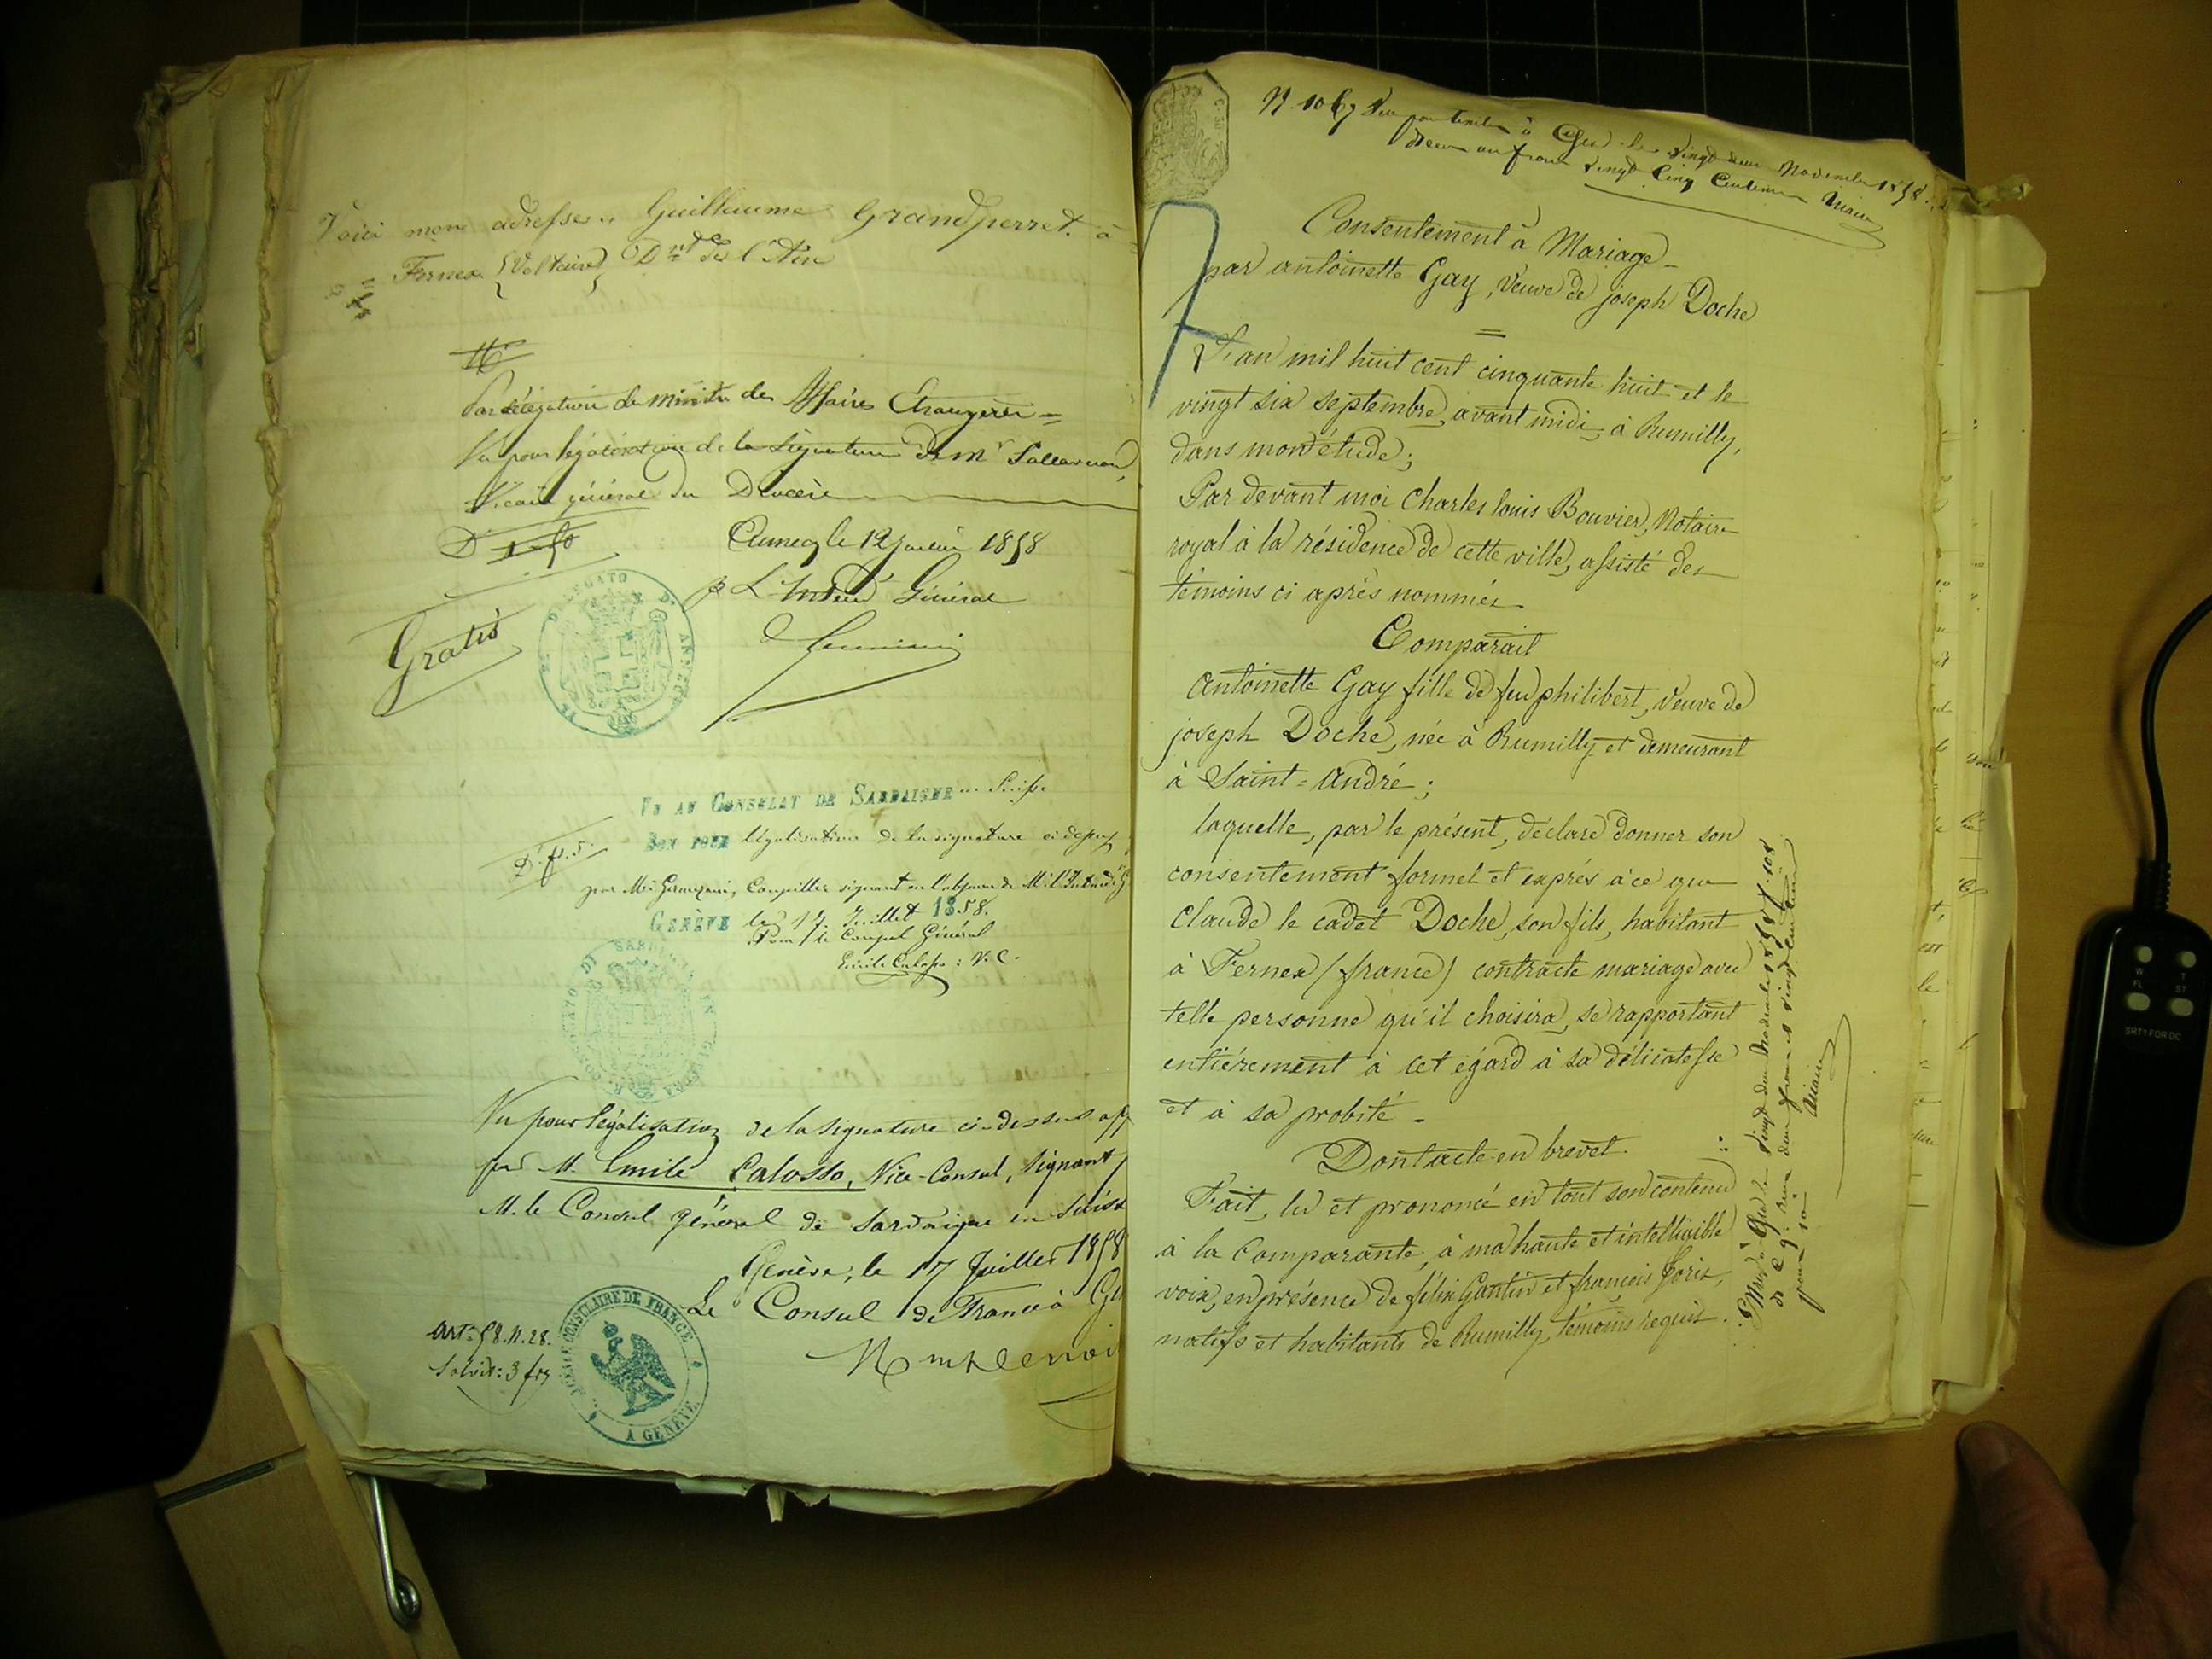 Voici mon adresse. Guillaume Grandperret. à
Fernex (Voltaire) Dnt de l'Ain
Par délégation du ministre des Affaires Etrangères =
Vu pour légalisation de la signature de Mr
Vicaire général du Diocèse
Annecy le 12 Juillet 1858
p. L'Intend Général
Gratis
VU AU CONSULAT DE SARDAIGNE en Suisse
BON POUR légalisation de la signature ci-dessus
D. fr. 5.
par Mr Conseiller signant en l'absence de M. l'Intendt G
GENÈVE le 17 Juillet 1858.
Pour le Consul Général
Emile Calosso : V. C.
CONSOLATO DI SARDEGNA IN GINEVRA
Vu pour légalisation de la signature ci-dessus app
par M. Emile Calosso, Vice-Consul, signant p
M. le Consul général de Sardaigne en Suisse
Genève, le 17 Juillet 1858
Le Consul de France à Ge
Art: 58.11.28.
Solvit: 3 frs
AGENCE CONSULAIRE DE FRANCE
A GENÈVE
N. 1067 Vu pour timbre à Gex le vingt deux Novembre 1858.
Reçu un franc vingt cinq centimes
Consentement à Mariage
par antoinette Gay, veuve de joseph Doche
=
L'an mil huit cent cinquante huit et le
vingt six septembre, avant midi, à Rumilly,
dans mon étude;
Par devant moi Charles louis Bouvier, Notaire
royal à la résidence de cette ville, assisté des
témoins ci après nommés
Comparait
Antoinette Gay fille de feu philibert, veuve de
joseph Doche, née à Rumilly et demeurant
à Saint=André;
laquelle, par le présent, déclare donner son
consentement formel et exprès à ce que
Claude le cadet Doche, son fils, habitant
à Fernex (france) contracte mariage avec
telle personne qu'il choisira, se rapportant
entièrement à cet égard à sa délicatesse
et à sa probité -
Dont acte en brevet
Fait, lu et prononcé en tout son contenu
à la Comparante, à ma haute et intelligible
voix, en présence de félix Gantin et françois foris,
natifs et habitants de Rumilly, témoins requis.
SRTY FOR DC